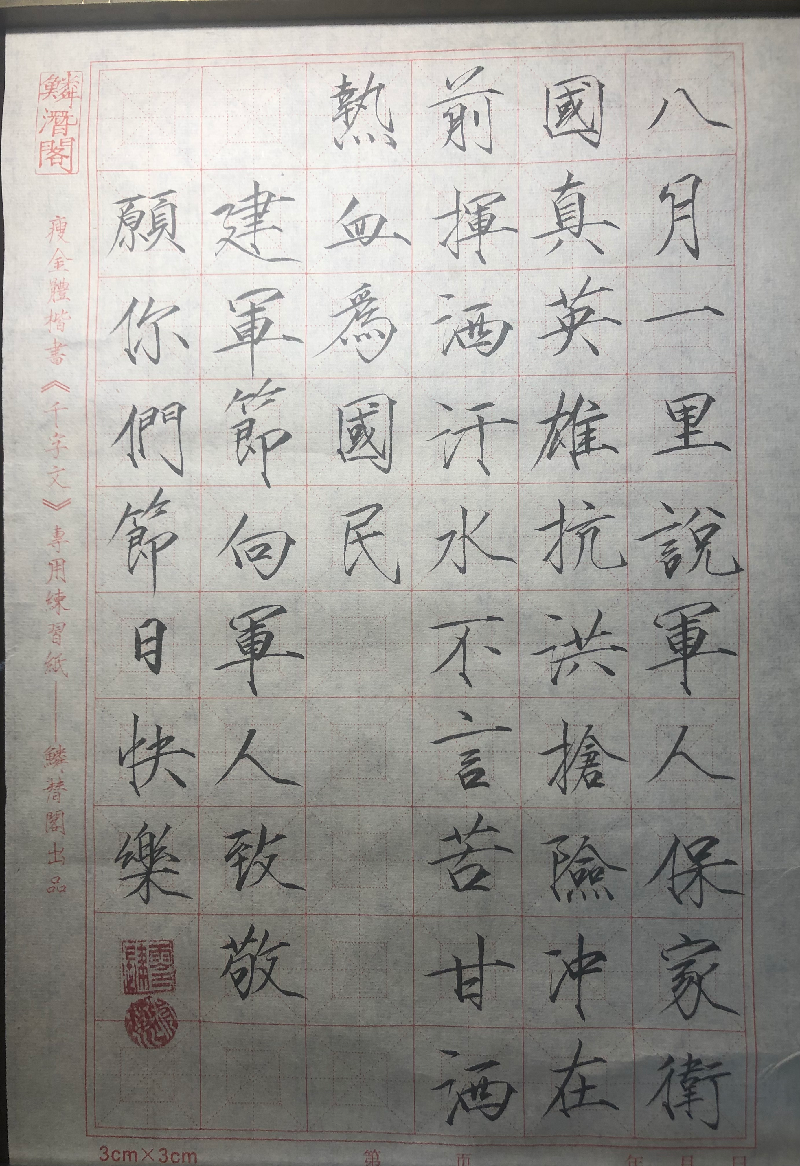 八月一里說軍人保家衛
國真英雄抗洪搶險沖在
前揮洒汗水不言苦甘洒
熱血為國民
建軍節向軍人致敬
願你們節日快樂
鱗潛閣
瘦金體楷書《千字文》專用練習紙——鱗潛閣出品
3cm×3cm
第 页 年 月 日